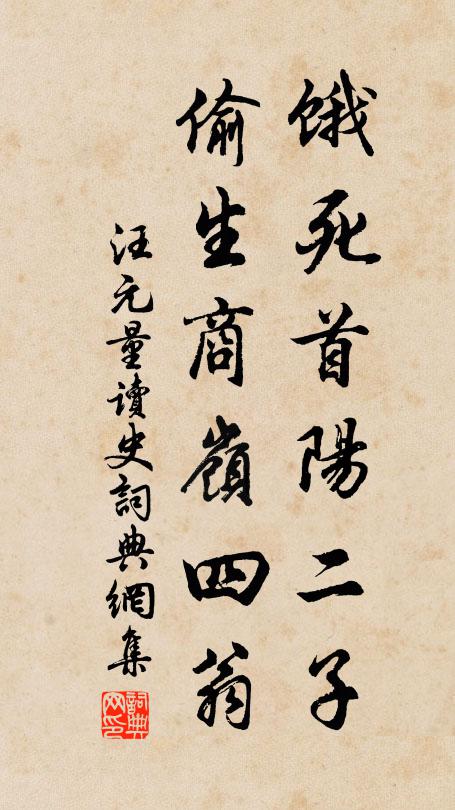 餓死首陽二子
偷生商嶺四翁
汪元量讀史詞典網集
詞典网印